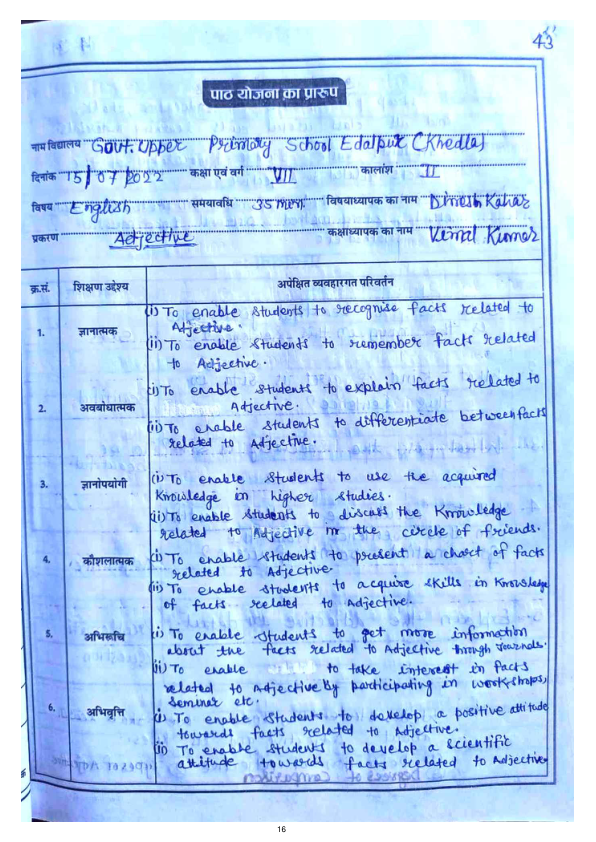 43
पाठ योजना का प्रारुप
नाम विद्यालय Govt. Upper Primary School Edalpur (Khedla)
दिनांक 15/07/2022 कक्षा एवं वर्ग VII कालांश II
विषय English समयावधि 35 min. विषयाध्यापक का नाम Dinesh Kahar
प्रकरण Adjective कक्षाध्यापक का नाम Vimal Kumar
क्र.सं. शिक्षण उद्देश्य अपेक्षित व्यवहारगत परिवर्तन
1. ज्ञानात्मक (i) To enable students to recognise facts related to
Adjective.
(ii) To enable students to remember facts related
to Adjective.
2. अवबोधात्मक (i) To enable students to explain facts related to
Adjective.
(ii) To enable students to differentiate between facts
related to Adjective.
3. ज्ञानोपयोगी (i) To enable students to use the acquired
Knowledge in higher studies.
(ii) To enable students to discuss the Knowledge
related to Adjective in the circle of friends.
4. कौशलात्मक (i) To enable students to present a chart of facts
related to Adjective.
(ii) To enable students to acquire skills in Knowledge
of facts related to Adjective.
5. अभिरूचि (i) To enable students to get more information
about the facts related to Adjective through Journals.
(ii) To enable to take interest in facts
related to Adjective by participating in workshops,
seminar etc.
6. अभिवृत्ति (i) To enable students to develop a positive attitude
towards facts related to Adjective.
(ii) To enable students to develop a scientific
attitude towards facts related to Adjective
16